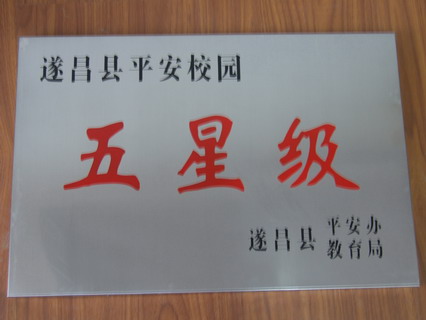 遂昌县平安校园
五星级
遂昌县 平安办
教育局